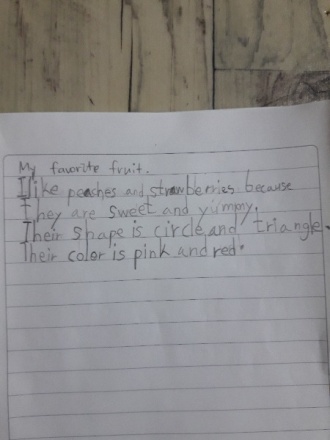 My favorite fruit.
I like peaches and strawberries because
They are sweet and yummy.
Their shape is circle and triangle.
Their color is pink and red.